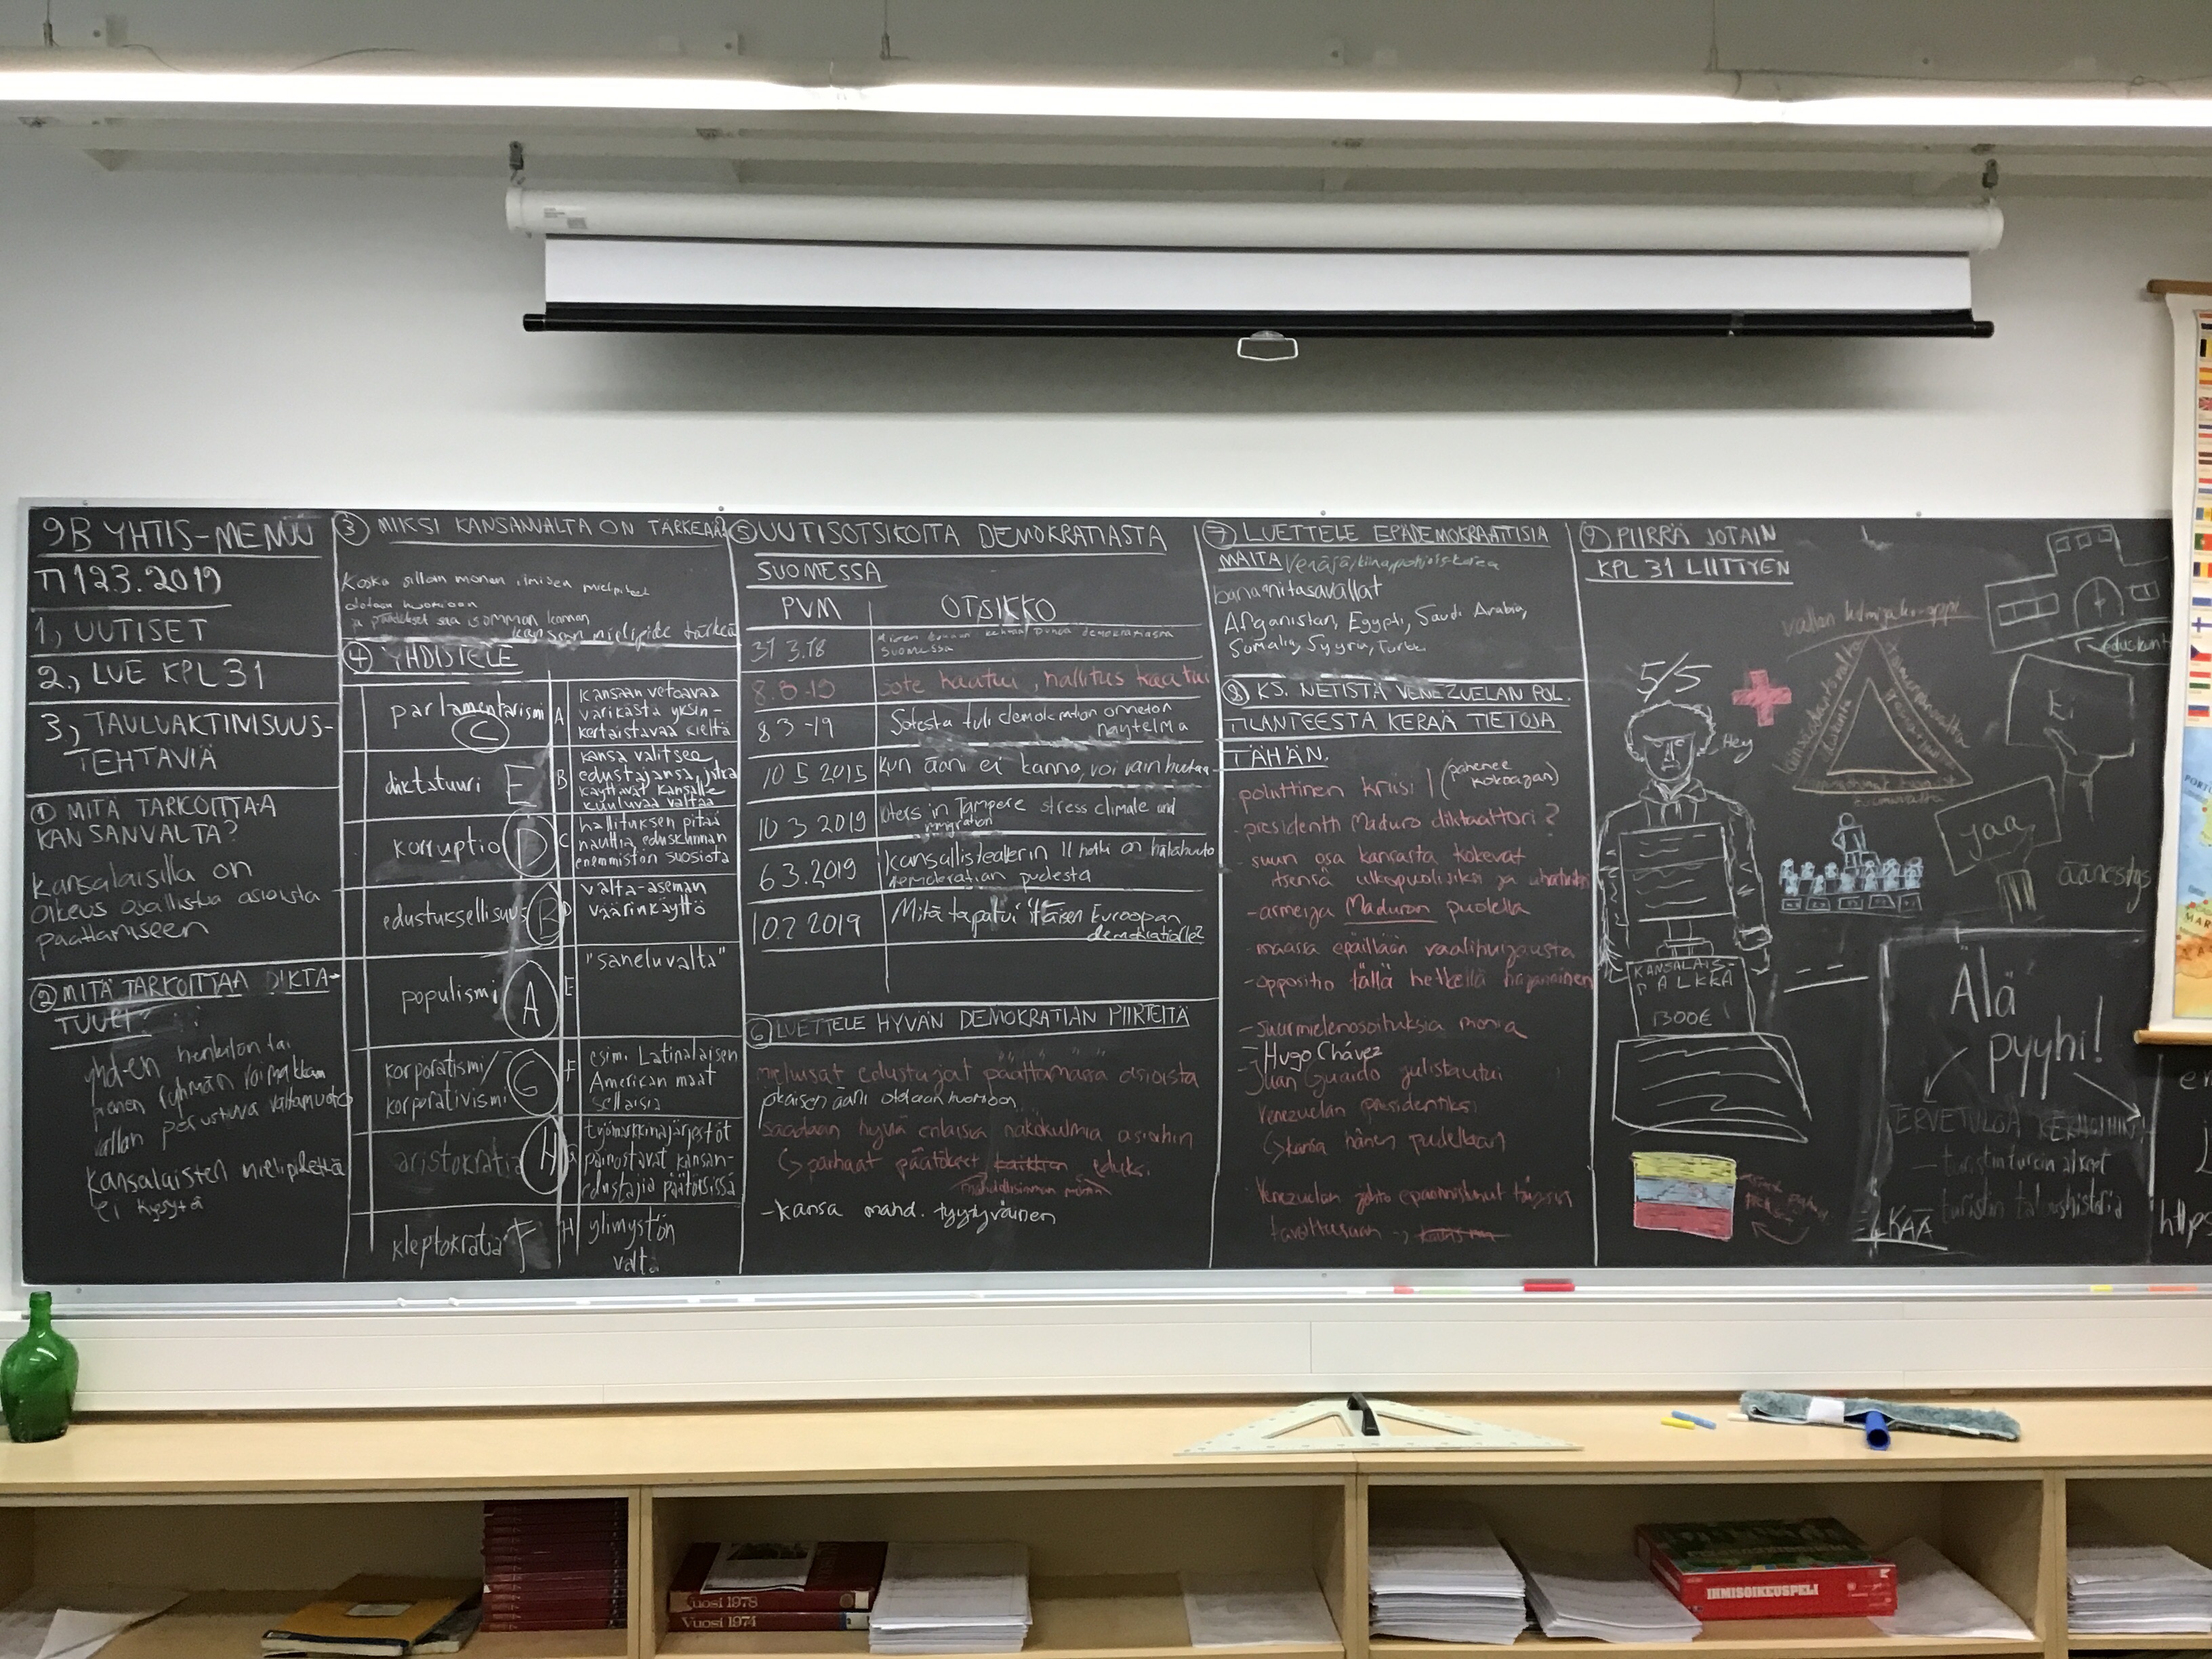 9B YHTIS-MENUU
TI 12.3.2019
1., UUTISET
2., LUE KPL 31
3., TAULUAKTIIVISUUS-
TEHTÄVIÄ
① MITÄ TARKOITTAA
KANSANVALTA?
Kansalaisilla on
oikeus osallistua asioista
päättämiseen
② MITÄ TARKOITTAA DIKTA-
TUURI?
yhden henkilön tai
pienen ryhmän voimakkaan
vallan perustuva valtamuoto
Kansalaisten mielipidettä
ei kysytä
③ MIKSI KANSANVALTA ON TÄRKEÄÄ?
Koska silloin monen ihmisen mielipiteet
otetaan huomioon
ja päätökset saa isomman kannan
kansan mielipide tärkeä
④ YHDISTELE
parlamentarismi
C
A
kansaan vetoavaa
värikästä yksin-
kertaistavaa kieltä
diktatuuri E
B
kansa valitsee
edustajansa, jotka
käyttävät kansalle
kuuluvaa valtaa
korruptio D
C
hallituksen pitää
nauttia eduskunnan
enemmistön suosiota
edustuksellisuus B
D
valta-aseman
väärinkäyttö
populismi A
E
"saneluvalta"
korporatismi/
korporativismi G
F
esim. Latinalaisen
Amerikan maat
sellaisia
aristokratia H
G
työmarkkinajärjestöt
painostavat kansan-
edustajia päätöksissä
kleptokratia F
H
ylimystön
valta
⑤ UUTISOTSIKOITA DEMOKRATIASTA
SUOMESSA
PVM OTSIKKO
31 3.18
demokratiasta
Suomessa
8.3-19 Sote kaatui, hallitus kaatui
8 3 -19 Sotesta tuli demokratian onneton
näytelmä
10 5 2015 Kun ääni ei kanna, voi vain huutaa
10 3 2019 Voters in Tampere stress climate and
immigration
6 3.2019 Kansallisteatterin hetki on
demokratian puolesta
10.2 2019 Mitä tapahtui Itäisen Euroopan
demokratialle?
⑥ LUETTELE HYVÄN DEMOKRATIAN PIIRTEITÄ
mieluisat edustajat päättämässä asioista
jokaisen ääni otetaan huomioon
saadaan hyvä erilaisia näkökulmia asioihin
↳ parhaat päätökset kaikkien eduksi.
mahdollisimman monen
- kansa mahd. tyytyväinen
⑦ LUETTELE EPÄDEMOKRAATTISIA
MAITA Venäjä, Kiina, pohjois-korea
banaanitasavallat
Afganistan, Egypti, Saudi Arabia,
Somalia, Syyria, Turkki
⑧ KS. NETISTÄ VENEZUELAN POL.
TILANTEESTA KERÄÄ TIETOJA
TÄHÄN.
poliittinen kriisi (pahenee
kokoajan)
- presidentti Maduro diktaattori?
- suuri osa kansasta kokevat
itsensä ulkopuolisiksi ja uhatuksi
- armeija Maduron puolella
- maassa epäillään vaalihuijausta
- oppositio tällä hetkellä hajanainen
- suurmielenosoituksia monia
- Hugo Chávez
- Juan Guaido julistautui
Venezuelan presidentiksi
↳ kansa hänen puolellaan
Venezuelan johto epäonnistunut täysin
⑨ PIIRRÄ JOTAIN
KPL 31 LIITTYEN
vallan kolmijako-oppi
lainsäädäntövalta
eduskunta
toimeenpanovalta
tuomiovalta
eduskunta
5/5
Hey
Ei
Jaa
äänestys
KANSALAIS-
PALKKA
1300€
Älä
pyyhi!
TERVETULOA KERHOIHIN!
turistin
turistin taloushistoria
ÄLKÄÄ
https
Vuosi 1978
Vuosi 1974
IHMISOIKEUSPELI